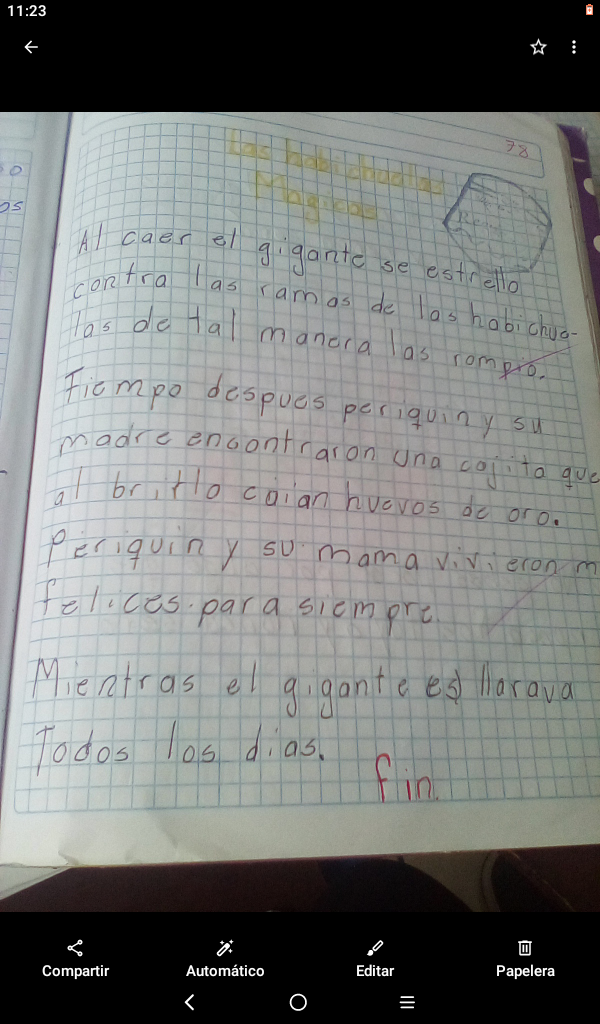 11:23
78
Las habichuelas
Magicas
Al caer el gigante se estrello
contra las ramas de las habichue-
las de tal manera las rompio.
Tiempo despues periquin y su
madre encontraron una cajita que
al brillo caian huevos de oro.
Periquin y su mama vivieron m
felices para siempre.
Mientras el gigante es llarava
Todos los dias.
fin.
Compartir
Automático
Editar
Papelera